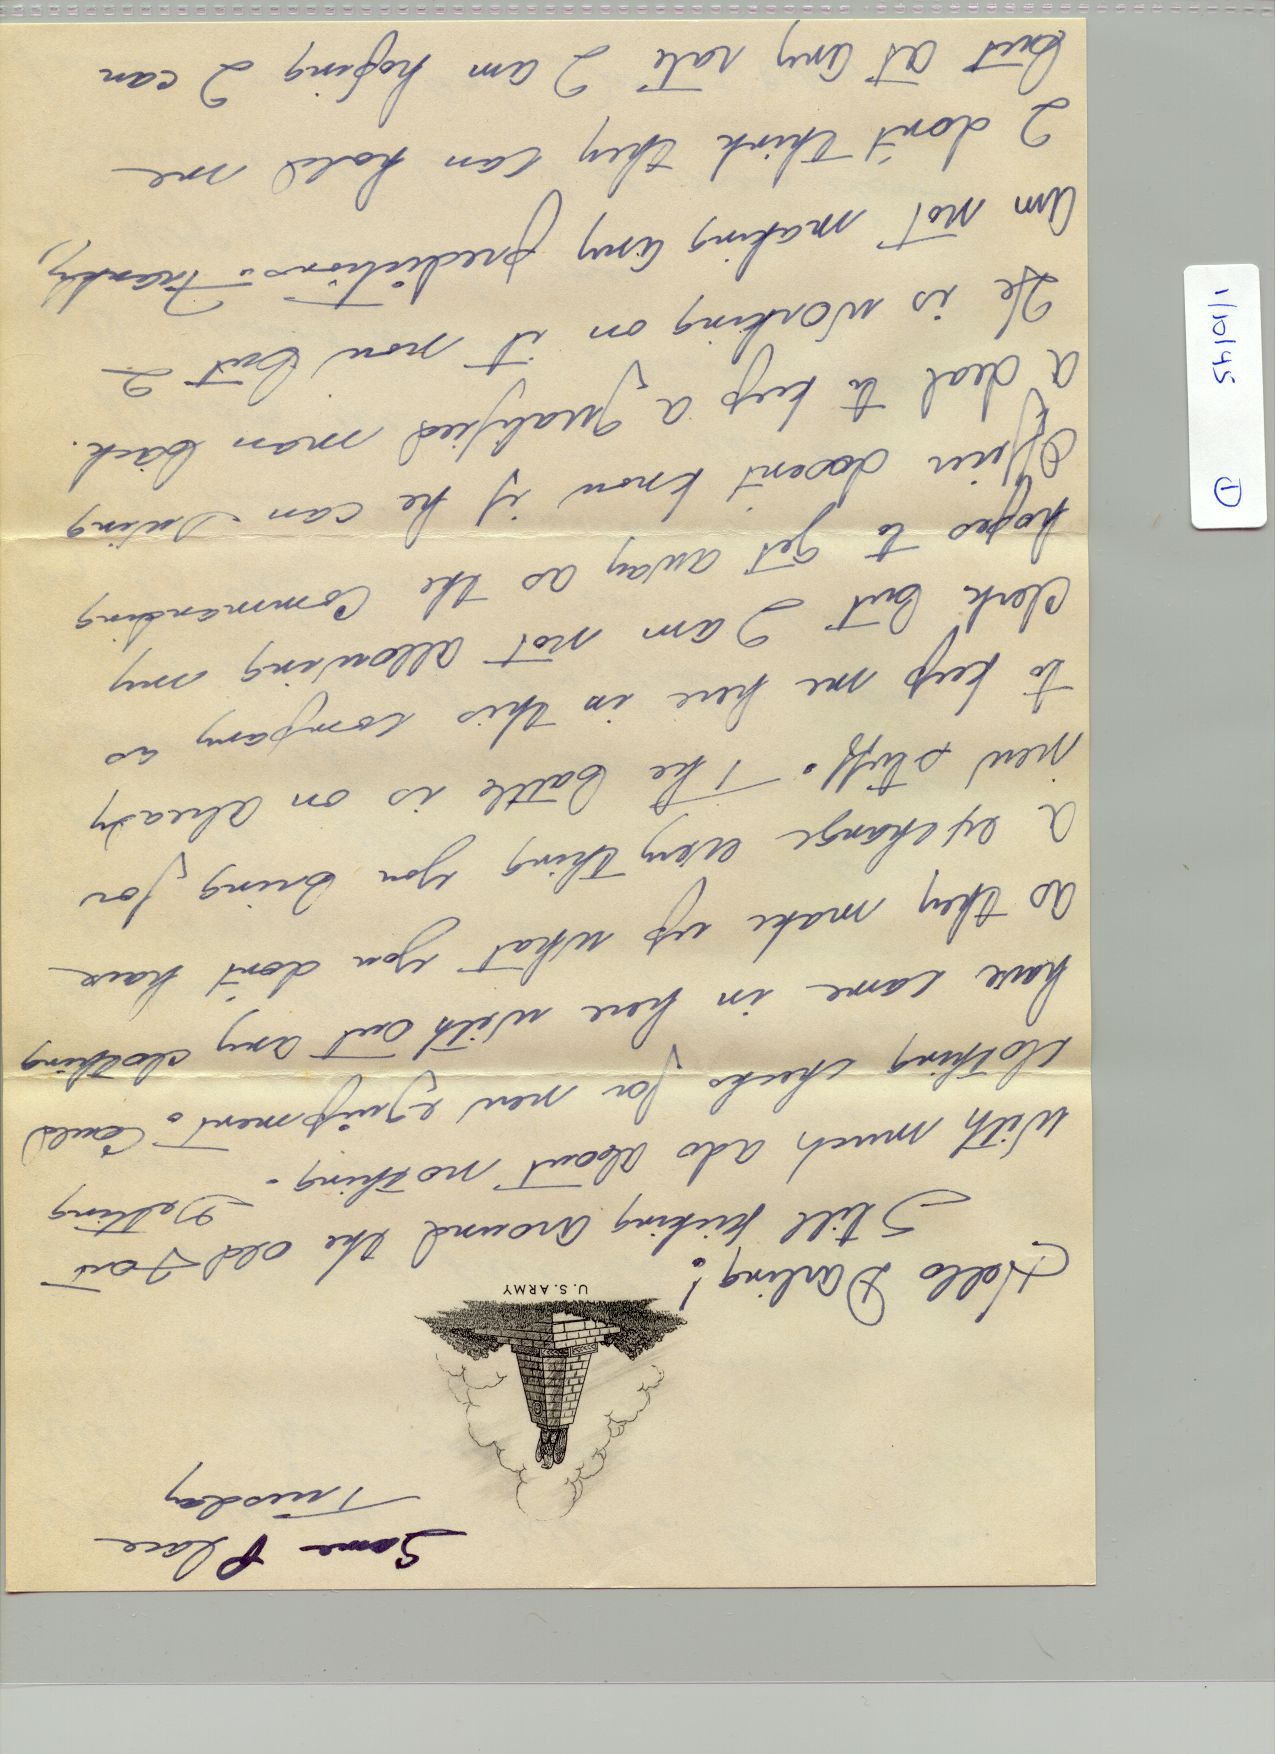 Same Place
Tuesday
U.S. ARMY
Hello Darling!
Still kicking around the old Fort
with much ado about nothing. Getting
clothing checks for new equipment. Could
have came in here with out any clothing
as they make up what you don't have
a exchange every thing you bring for
new stuff. The battle is on already
to keep me here in this company as
clerk but I am not allowing my
hopes to get away as the Commanding
Officer doesn't know if he can swing
a deal to keep a qualified man back.
He is working on it now but I
am not making any predictions. Frankly,
I don't think they can hold me
but at any rate I am hoping I can
1/10/45 1